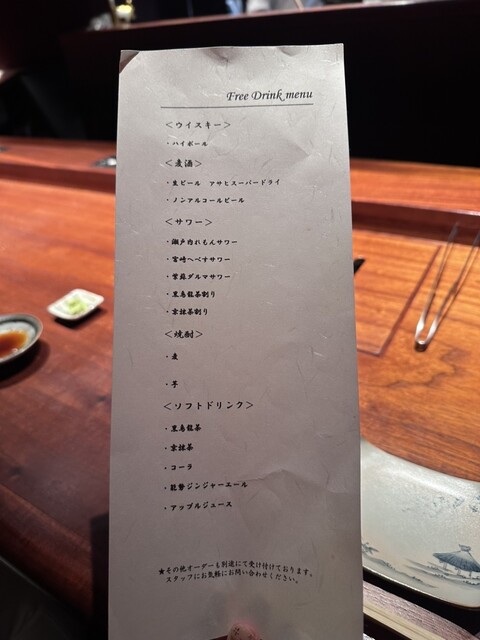 Free Drink menu
＜ウイスキー＞
・ハイボール
＜麦酒＞
・生ビール　アサヒスーパードライ
・ノンアルコールビール
＜サワー＞
・瀬戸内れもんサワー
・宮崎へべすサワー
・紫蘇ダルマサワー
・黒烏龍茶割り
・京抹茶割り
＜焼酎＞
・麦
・芋
＜ソフトドリンク＞
・黒烏龍茶
・京抹茶
・コーラ
・能勢ジンジャーエール
・アップルジュース
★その他オーダーも別途にて受け付けております。
スタッフにお気軽にお問い合わせください。